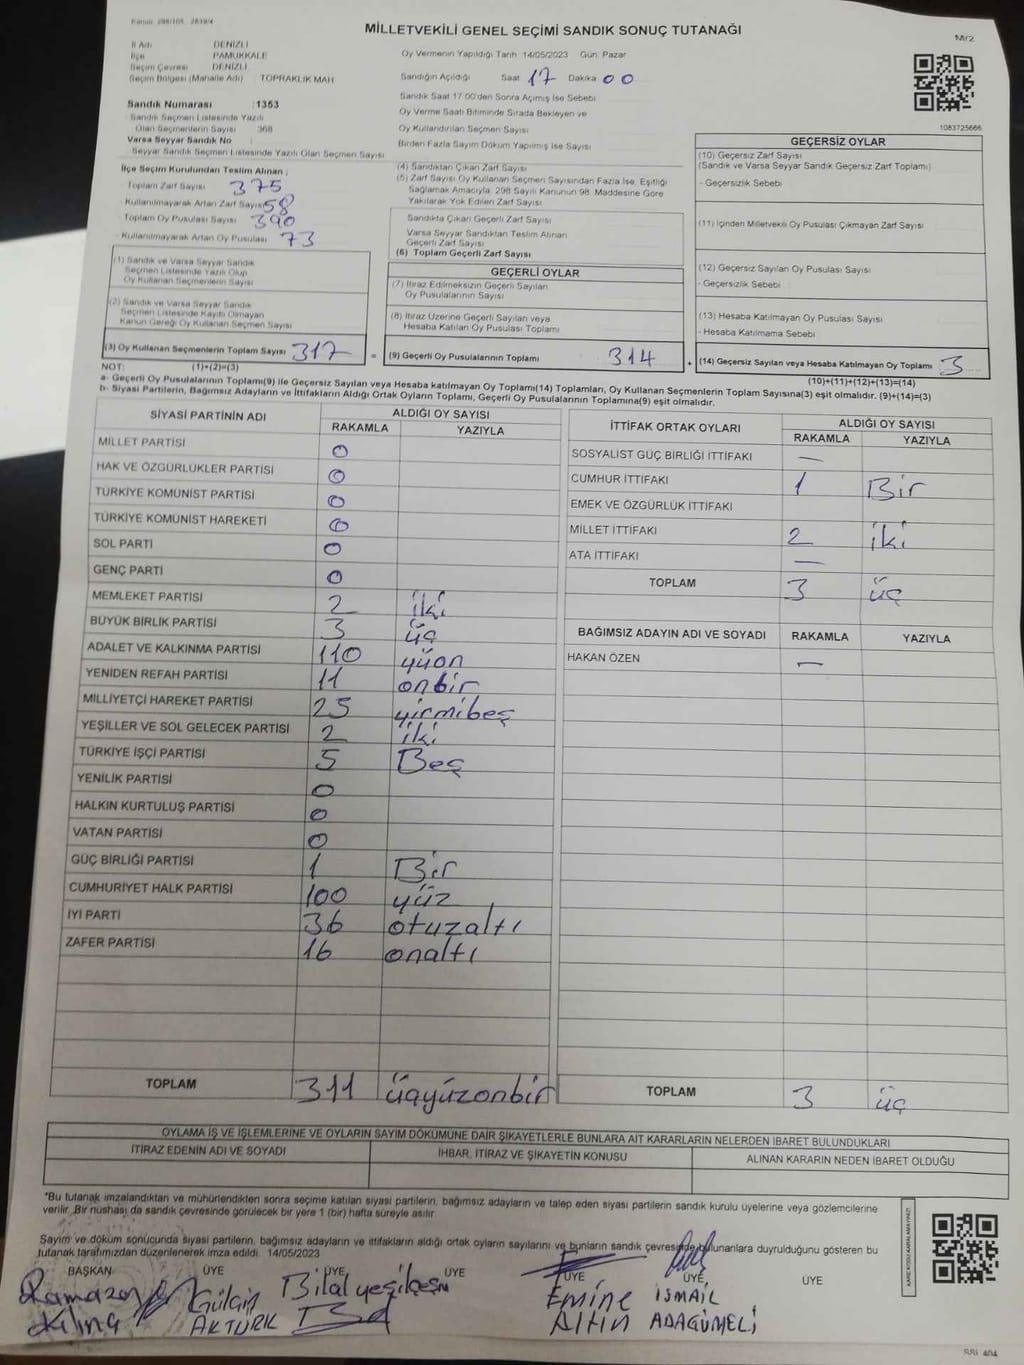 Kanun: 298/105, 2839/4
MİLLETVEKİLİ GENEL SEÇİMİ SANDIK SONUÇ TUTANAĞI
M/2
İl Adı DENİZLİ
İlçe PAMUKKALE
Seçim Çevresi DENİZLİ
Seçim Bölgesi (Mahalle Adı) TOPRAKLIK MAH
Oy Vermenin Yapıldığı Tarih 14/05/2023 Gün: Pazar
Sandığın Açıldığı Saat 17 Dakika 00
Sandık Saat 17:00'den Sonra Açılmış İse Sebebi
Oy Verme Saati Bitiminde Sırada Bekleyen ve
Oy Kullandırılan Seçmen Sayısı
Birden Fazla Sayım Döküm Yapılmış İse Sayısı
1083725666
Sandık Numarası :1353
Sandık Seçmen Listesinde Yazılı
Olan Seçmenlerin Sayısı 368
Varsa Seyyar Sandık No
Seyyar Sandık Seçmen Listesinde Yazılı Olan Seçmen Sayısı
İlçe Seçim Kurulundan Teslim Alınan ;
- Toplam Zarf Sayısı 375
- Kullanılmayarak Artan Zarf Sayısı 58
- Toplam Oy Pusulası Sayısı 390
- Kullanılmayarak Artan Oy Pusulası 73
(1) Sandık ve Varsa Seyyar Sandık
Seçmen Listesinde Yazılı Olup
Oy Kullanan Seçmenlerin Sayısı
(2) Sandık ve Varsa Seyyar Sandık
Seçmen Listesinde Kayıtlı Olmayan
Kanun Gereği Oy Kullanan Seçmen Sayısı
(3) Oy Kullanan Seçmenlerin Toplam Sayısı 317
(4) Sandıktan Çıkan Zarf Sayısı
(5) Zarf Sayısı Oy Kullanan Seçmen Sayısından Fazla İse, Eşitliği
Sağlamak Amacıyla, 298 Sayılı Kanunun 98. Maddesine Göre
Yakılarak Yok Edilen Zarf Sayısı
Sandıkta Çıkan Geçerli Zarf Sayısı
Varsa Seyyar Sandıktan Teslim Alınan
Geçerli Zarf Sayısı
(6) Toplam Geçerli Zarf Sayısı
GEÇERLİ OYLAR
(7) İtiraz Edilmeksizin Geçerli Sayılan
Oy Pusulalarının Sayısı
(8) İtiraz Üzerine Geçerli Sayılan veya
Hesaba Katılan Oy Pusulası Toplamı
= (9) Geçerli Oy Pusulalarının Toplamı 314
GEÇERSİZ OYLAR
(10) Geçersiz Zarf Sayısı
(Sandık ve Varsa Seyyar Sandık Geçersiz Zarf Toplamı)
- Geçersizlik Sebebi
(11) İçinden Milletvekili Oy Pusulası Çıkmayan Zarf Sayısı
(12) Geçersiz Sayılan Oy Pusulası Sayısı
- Geçersizlik Sebebi
(13) Hesaba Katılmayan Oy Pusulası Sayısı
- Hesaba Katılmama Sebebi
+ (14) Geçersiz Sayılan veya Hesaba Katılmayan Oy Toplamı 3
NOT: (1)+(2)=(3)
(10)+(11)+(12)+(13)=(14)
a- Geçerli Oy Pusulalarının Toplamı(9) ile Geçersiz Sayılan veya Hesaba katılmayan Oy Toplamı(14) Toplamları, Oy Kullanan Seçmenlerin Toplam Sayısına(3) eşit olmalıdır. (9)+(14)=(3)
b- Siyasi Partilerin, Bağımsız Adayların ve İttifakların Aldığı Ortak Oyların Toplamı, Geçerli Oy Pusulalarının Toplamına(9) eşit olmalıdır.
SİYASİ PARTİNİN ADI ALDIĞI OY SAYISI
RAKAMLA YAZIYLA
MİLLET PARTİSİ 0
HAK VE ÖZGÜRLÜKLER PARTİSİ 0
TÜRKİYE KOMÜNİST PARTİSİ 0
TÜRKİYE KOMÜNİST HAREKETİ 0
SOL PARTİ 0
GENÇ PARTİ 0
MEMLEKET PARTİSİ 2 iki
BÜYÜK BİRLİK PARTİSİ 3 üç
ADALET VE KALKINMA PARTİSİ 110 yüon
YENİDEN REFAH PARTİSİ 11 onbir
MİLLİYETÇİ HAREKET PARTİSİ 25 yirmibeş
YEŞİLLER VE SOL GELECEK PARTİSİ 2 iki
TÜRKİYE İŞÇİ PARTİSİ 5 Beş
YENİLİK PARTİSİ 0
HALKIN KURTULUŞ PARTİSİ 0
VATAN PARTİSİ 0
GÜÇ BİRLİĞİ PARTİSİ 1 Bir
CUMHURİYET HALK PARTİSİ 100 yüz
İYİ PARTİ 36 otuzaltı
ZAFER PARTİSİ 16 onaltı
TOPLAM 311 üçyüzonbir
İTTİFAK ORTAK OYLARI ALDIĞI OY SAYISI
RAKAMLA YAZIYLA
SOSYALİST GÜÇ BİRLİĞİ İTTİFAKI —
CUMHUR İTTİFAKI 1 Bir
EMEK VE ÖZGÜRLÜK İTTİFAKI
MİLLET İTTİFAKI 2 iki
ATA İTTİFAKI —
TOPLAM 3 üç
BAĞIMSIZ ADAYIN ADI VE SOYADI RAKAMLA YAZIYLA
HAKAN ÖZEN —
TOPLAM 3 üç
OYLAMA İŞ VE İŞLEMLERİNE VE OYLARIN SAYIM DÖKÜMÜNE DAİR ŞİKAYETLERLE BUNLARA AİT KARARLARIN NELERDEN İBARET BULUNDUKLARI
İTİRAZ EDENİN ADI VE SOYADI İHBAR, İTİRAZ VE ŞİKAYETİN KONUSU ALINAN KARARIN NEDEN İBARET OLDUĞU
*Bu tutanak imzalandıktan ve mühürlendikten sonra seçime katılan siyasi partilerin, bağımsız adayların ve talep eden siyasi partilerin sandık kurulu üyelerine veya gözlemcilerine
verilir. Bir nüshası da sandık çevresinde görülecek bir yere 1 (bir) hafta süreyle asılır.
Sayım ve döküm sonucunda siyasi partilerin, bağımsız adayların ve ittifakların aldığı ortak oyların sayılarını ve bunların sandık çevresinde bulunanlara duyrulduğunu gösteren bu
tutanak tarafımızdan düzenlenerek imza edildi. 14/05/2023
BAŞKAN ÜYE ÜYE ÜYE ÜYE ÜYE ÜYE
Ramazan Kılınç
Gülçin AKTÜRK
Bilal
Emine Altın
İSMAİL ADAGÜMELİ